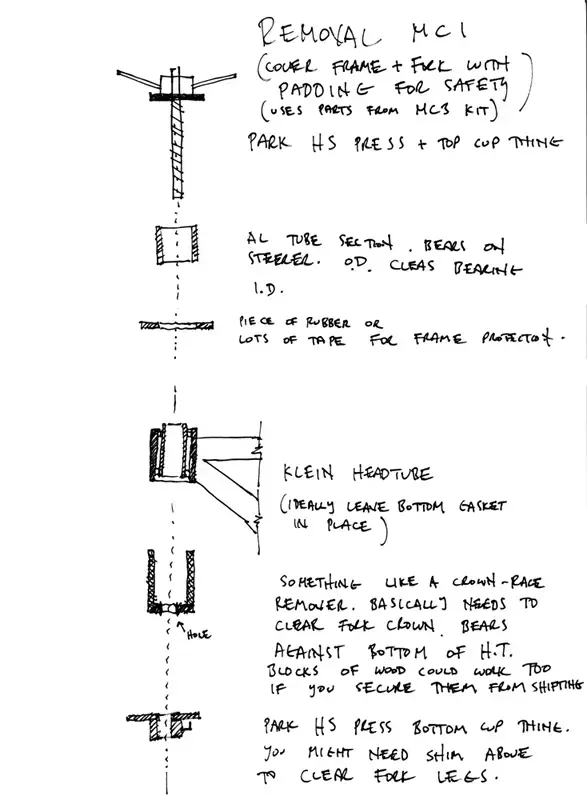 REMOVAL MC1
(COVER FRAME + FORK WITH
PADDING FOR SAFETY
(USES PARTS FROM MC3 KIT)
PARK HS PRESS + TOP CUP THING
AL TUBE SECTION. BEARS ON
STEERER. O.D. CLEAS BEARING
I.D.
PIECE OF RUBBER OR
LOTS OF TAPE FOR FRAME PROTECTION.
KLEIN HEADTUBE
(IDEALLY LEAVE BOTTOM GASKET
IN PLACE)
SOMETHING LIKE A CROWN-RACE
REMOVER. BASICALLY NEEDS TO
CLEAR FORK CROWN. BEARS
AGAINST BOTTOM OF H.T.
BLOCKS OF WOOD COULD WORK TOO
IF YOU SECURE THEM FROM SHIFTING
HOLE
PARK HS PRESS BOTTOM CUP THING.
YOU MIGHT NEED SHIM ABOVE
TO CLEAR FORK LEGS.